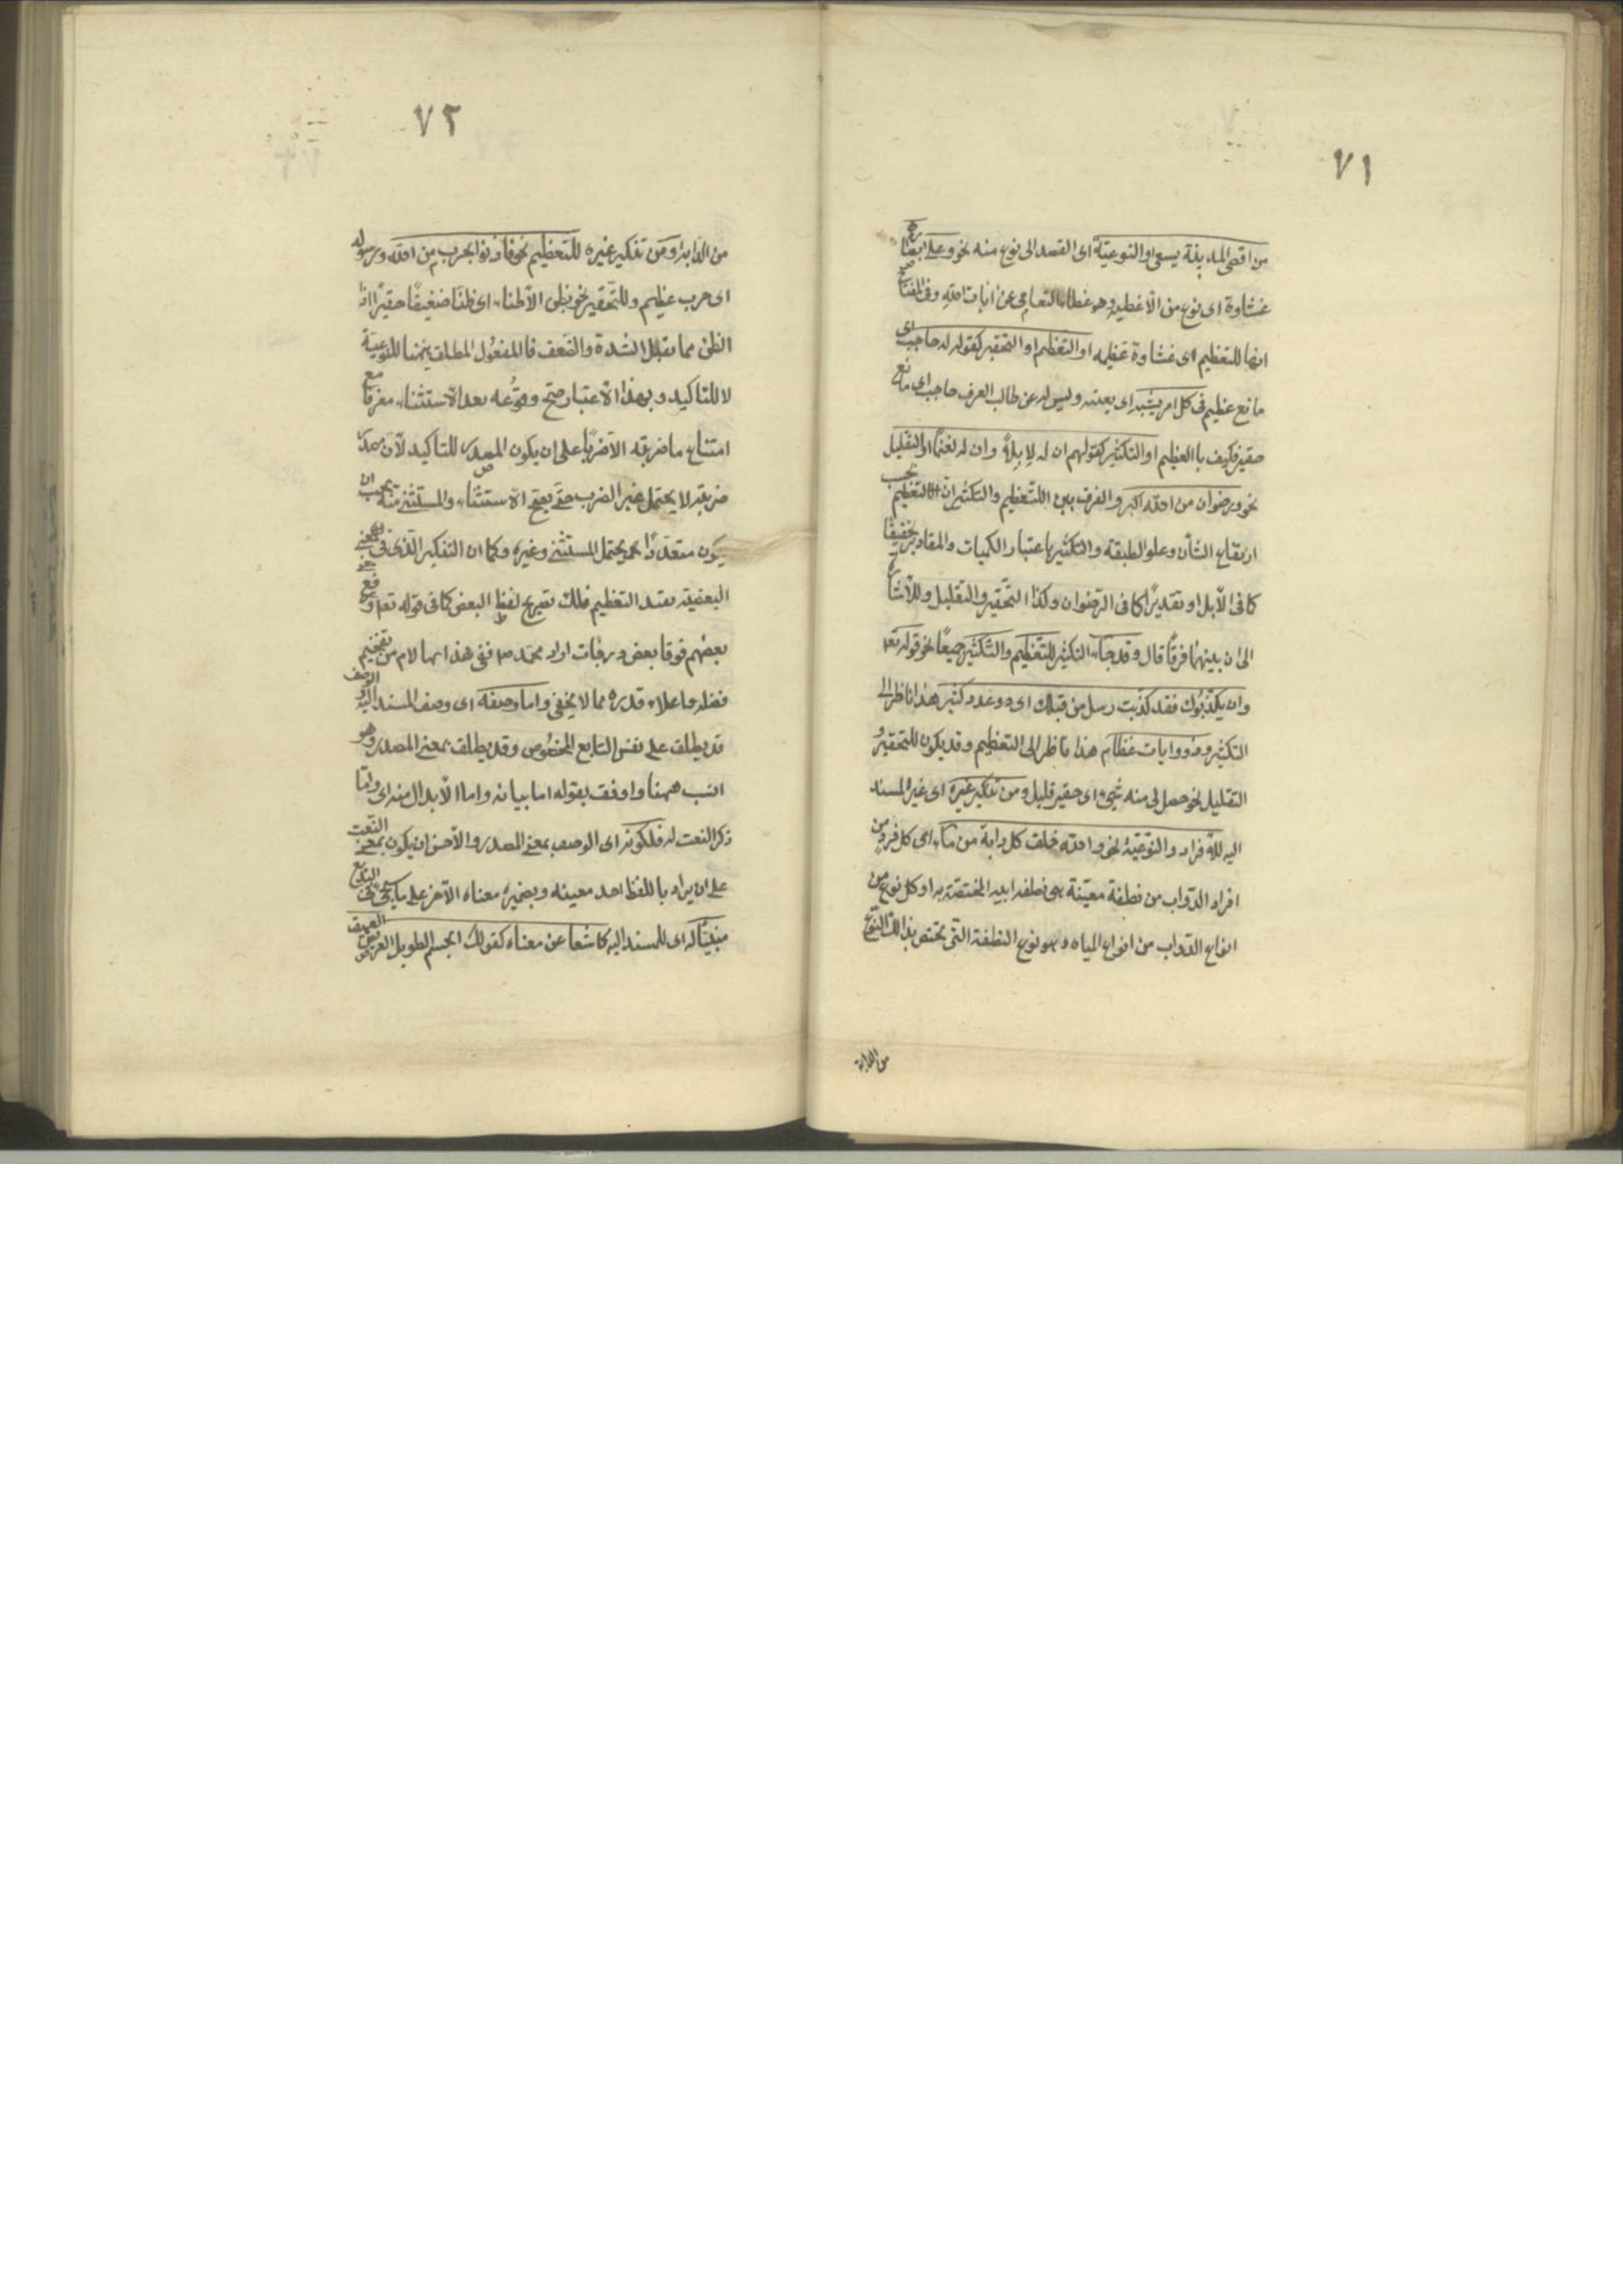 ٧١
من اقصى المدينة يسعى او النوعية اى القصد الى نوع منه نحو وعلى ابصارهم
غشاوة اى نوع من الاغطية وهو غطاء التعامى عن ايات الله وفى المفتاح
انها للتعظيم اى غشاوة عظيمة او التعظيم او التحقير كقوله له حاجب اى
مانع عظيم فى كل امر يشينه اى يعيبه وليس له عن طالب العرف حاجب اى مانع
حقير فكيف باالعظيم او التكثير كقولهم ان له لإبلاً وان له لغنمًا او التقليل
نحو ورضوان من الله اكبر والفرق بين التعظيم والتكثير ان التعظيم بحسب
ارتفاع الشأن وعلو الطبقة والتكثير باعتبار الكميات والمقادير تحقيقًا
كما فى الابل او تقديرًا كما فى الرضوان وكذا التحقير والتقليل وللاشارة
الى ان بينهما فرقًا قال وقد جاء التنكير للتعظيم والتكثير جميعًا نحو قوله تعه
وان يكذبوك فقد كذبت رسل من قبلك اى ذو عدد كثير هذا ناظر الى
التكثير وذووايات عظام هذا ناظر الى التعظيم وقد يكون للتحقير و
التقليل نحو حصل لى منه شيئ اى حقير قليل ومن تنكير غيره اى غير المسند
اليه للافراد والنوعية نحو والله خلق كل دابة من ماء اى كل فرد من
افراد الدواب من نطفة معينة هى نطفة ابيه المختصة به او كل نوع من
انواع الدواب من انواع المياه وهو نوع النطفة التى تختص بذالك النوع
من الدابة
٧٢
من الدابة ومن تنكير غيره للتعظيم نحو فأذنوا بحرب من الله ورسوله
اى حرب عظيم وللتحقير نحو نظن الاظنا اى ظنا ضعيفًا حقيرًا اذا
الظن مما يقبل الشدة والضعف فا المفعول المطلق ههنا للنوعية
لا للتاكيد وبهذا الاعتبار صح وقوعه بعد الاستثناء مفرغا مع
امتناع ما ضربته الاضربًا على ان يكون المصدر للتاكيد لان مصدر
ضربته لا يحتمل غير الضرب حتى يصح الاستثناء والمستثنى منه يجب ان
يكون متعددًا يحتمل المستثنى وغيره وكما ان التنكير الذى فى معنى
البعضية يفيد التعظيم فكذلك تصريح لفظ البعض كما فى قوله تعه ورفع
بعضهم فوقا بعض درجات اراد محمد صه ففى هذا ابهام من تفخيم
فضله واعلاء قدره مما لا يخفى واما وصفه اى وصف المسند اليه والوصف
قد يطلق على نفس التابع المخصوص وقد يطلق بمعنى المصدر وهو
انسب ههنا واوفق بقوله اما بيانه واما الابدال منه اى واما
ذكر النعت له فلكونه اى الوصف بمعنى المصدر والاحسن ان يكون بمعنى النعت
على ان يراد باللفظ احد معينه وبضميره معناه الآخر على ما سيجئ فى البديع
مبينًا له اى للمسند اليه كاشفا عن معناه كقولك الجسم الطويل العريض العميق